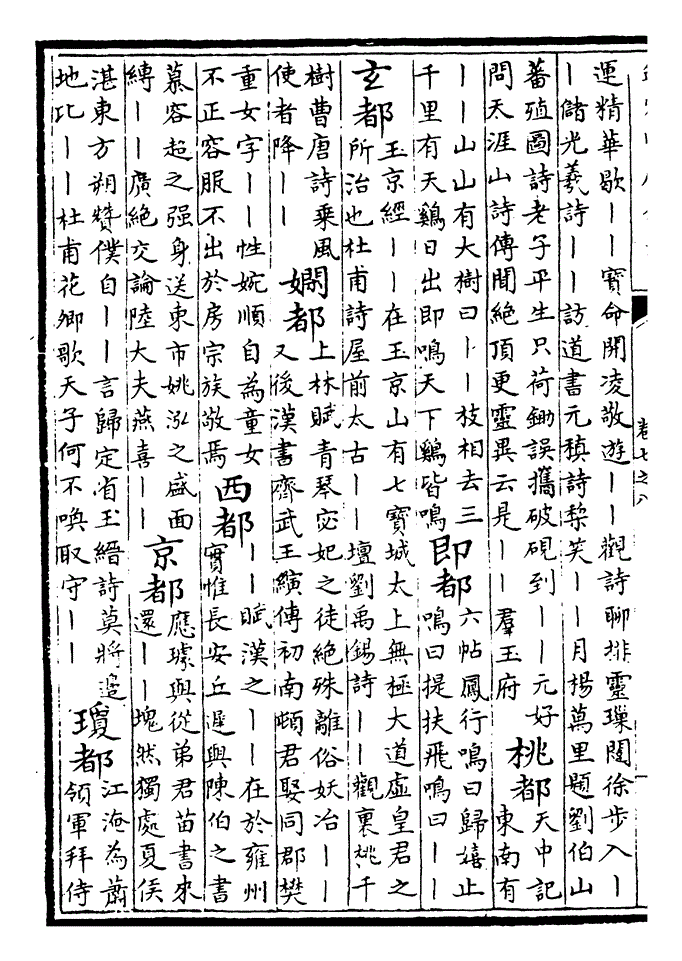 卷七之八
運精華歇｜｜寶命開凌敬遊｜｜觀詩聊排靈璅闥徐步入｜
｜儲光羲詩｜｜訪道書元稹詩棃笑｜｜月楊萬里題劉伯山
蕃殖圖詩老子平生只荷鋤誤攜破硯到｜｜元好
問天涯山詩傳聞絕頂更靈異云是｜｜羣玉府
桃都
天中記
東南有
｜｜山山有大樹曰｜｜枝相去三
千里有天鷄日出即鳴天下鷄皆鳴
即都
六帖鳳行鳴曰歸嬉止
鳴曰提扶飛鳴曰｜｜
玄都
玉京經｜｜在玉京山有七寶城太上無極大道虛皇君之
所治也杜甫詩屋前太古｜｜壇劉禹錫詩｜｜觀裏桃千
樹曹唐詩乘風
使者降｜｜
嫺都
上林賦青琴宓妃之徒絕殊離俗妖冶｜｜
又後漢書齊武王縯傳初南頓君娶同郡樊
重女字｜｜性婉順自為童女
不正容服不出於房宗族敬焉
西都
｜｜賦漢之｜｜在於雍州
實惟長安丘遲與陳伯之書
慕容超之强身送東市姚泓之盛面
縳｜｜廣絕交論陸大夫燕喜｜｜
京都
應璩與從弟君苗書來
還｜｜塊然獨處夏侯
湛東方朔贊僕自｜｜言歸定省王縉詩莫將邉
地比｜｜杜甫花卿歌天子何不喚取守｜｜
瓊都
江淹為蕭
領軍拜侍